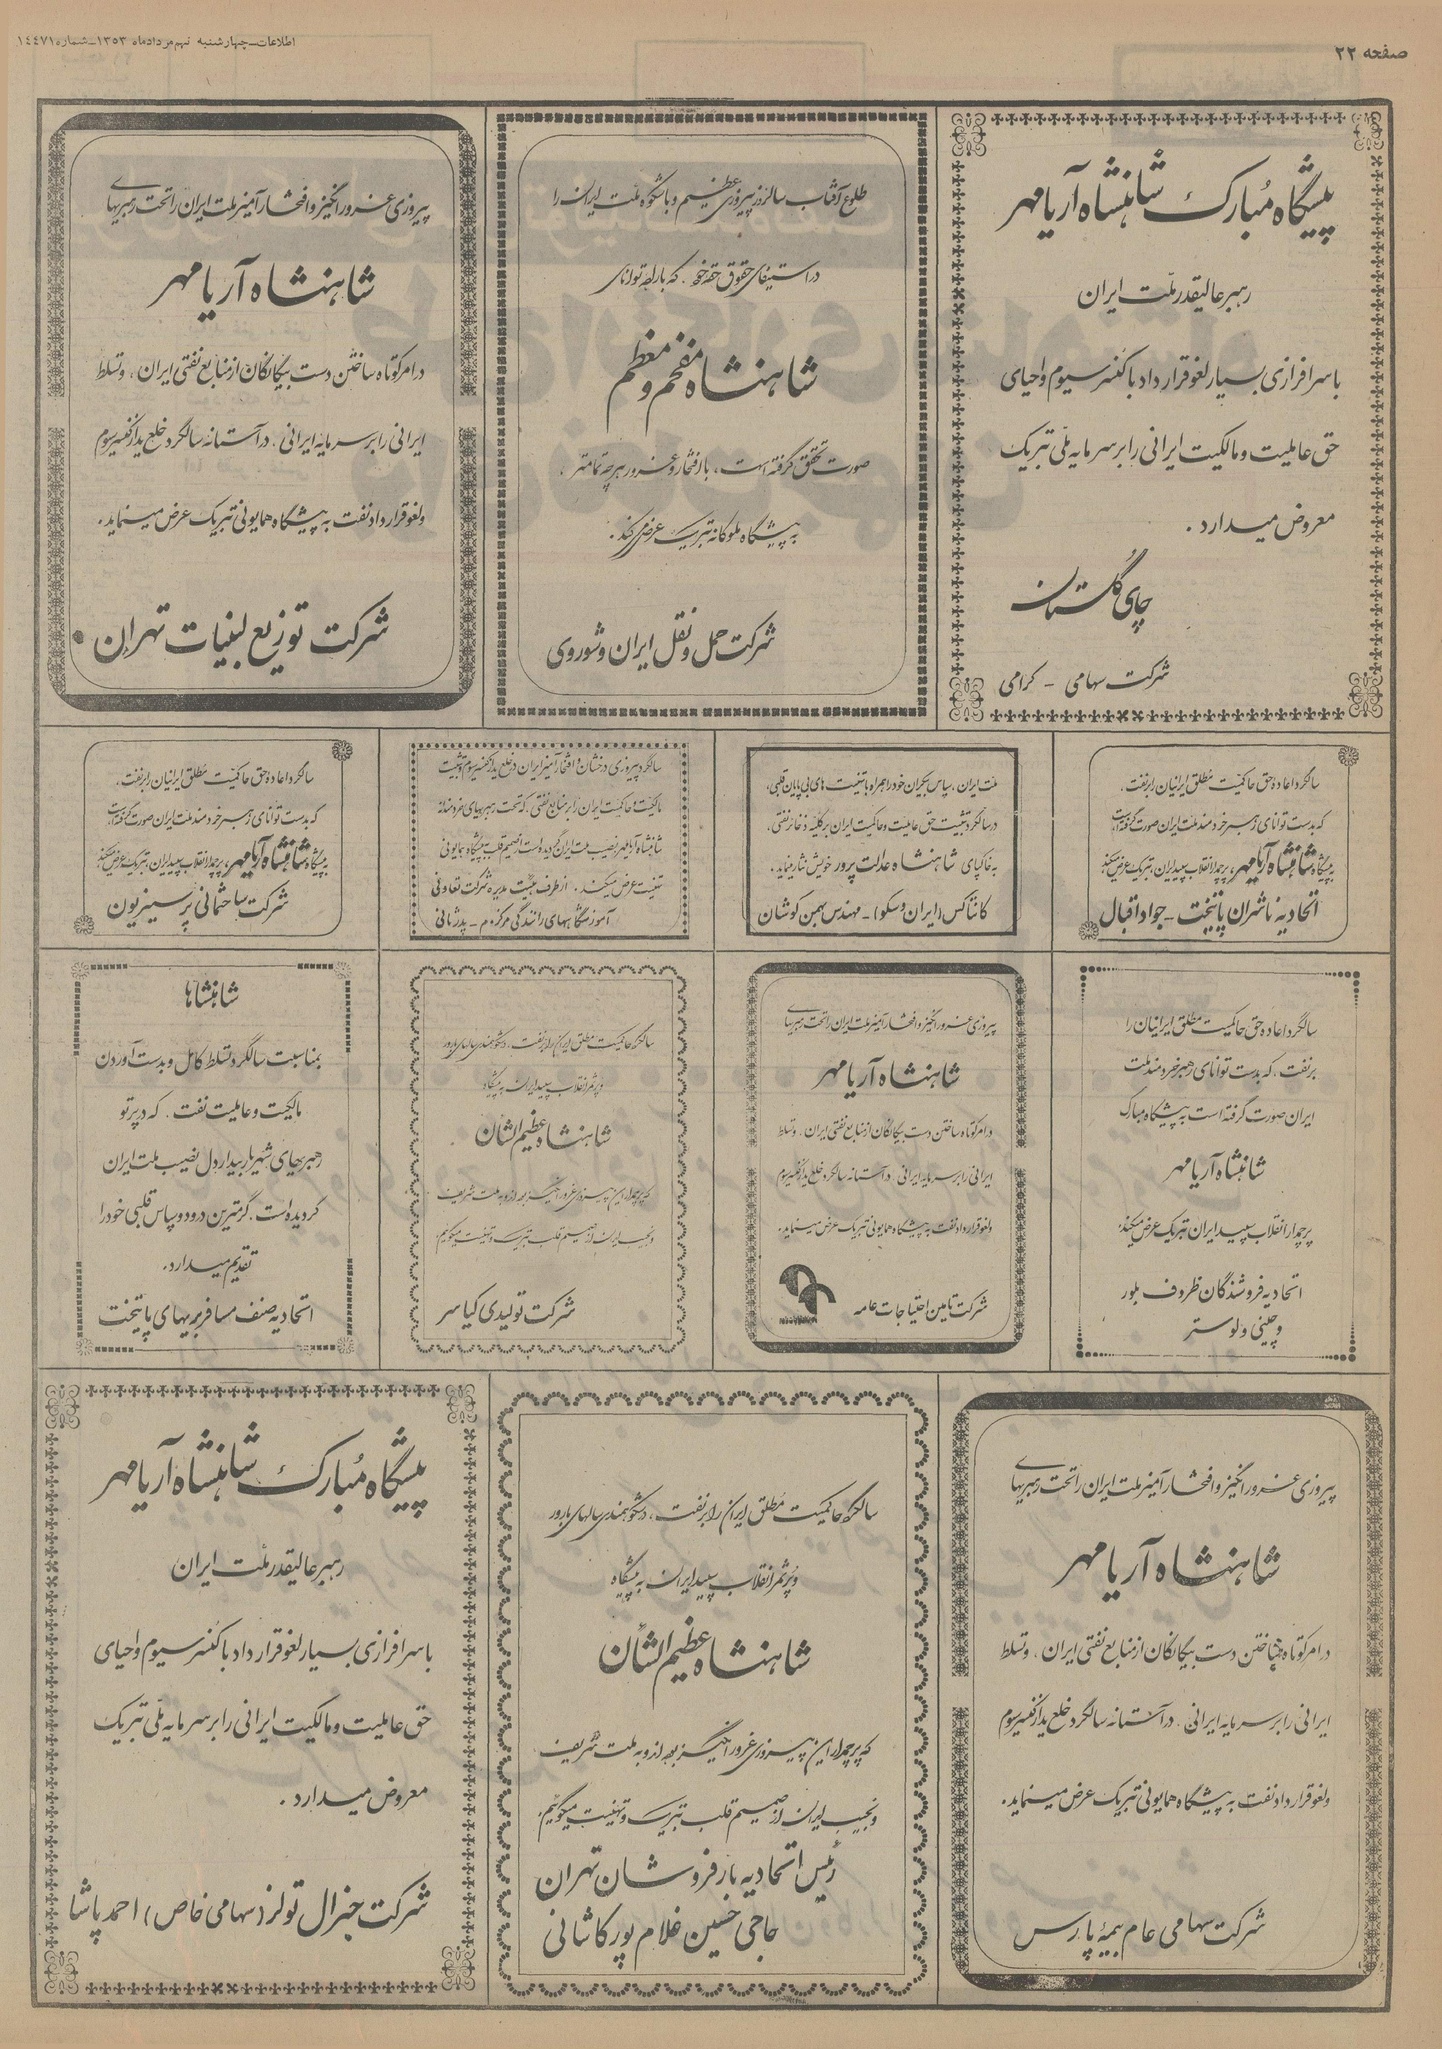 صفحه ۲۲
اطلاعات ـ چهارشنبه نهم مردادماه ۱۳۵۳ ـ شماره ۱٤٤۷۱
پیشگاه مبارک شاهنشاه آریامهر
رهبر عالیقدر ملت ایران
با سرافرازی بسیار لغو قرار داد با کنسرسیوم و احیای
حق عاملیت و مالکیت ایرانی را بر سرمایه ملّی تبریک
معروض میدارد .
چای گلستان
شرکت سهامی - کرامی
طلوع آفتاب سالروز پیروزی عظیم و باشکوه ملت ایران را
در استیفای حقوق حقه خود . که با رهبری توانای
شاهنشاه مفخم و معظم
صورت تحقق گرفته است ، با افتخار و غرور هر چه تمامتر ،
به پیشگاه ملوکانه تبریک عرض میکند .
شرکت حمل و نقل ایران و شوروی
پیروزی غرورانگیز و افتخارآمیز ملت ایران را تحت رهبریهای
شاهنشاه آریامهر
در امر کوتاه ساختن دست بیگانگان از منابع نفتی ایران ، و تسلط
ایرانی را بر سرمایه ایرانی . در آستانه سالگرد خلع ید از کنسرسیوم
و لغو قرارداد نفت به پیشگاه همایونی تبریک عرض مینماید .
شرکت توزیع لبنیات تهران
سالگرد اعاده حق حاکمیت مطلق ایرانیان را بر نفت ،
که بدست توانای رهبر خردمند ملت ایران صورت گرفته است ،
به پیشگاه شاهنشاه آریامهر ، پرچمدار انقلاب سپید ایران ، تبریک عرض میکند :
اتحادیه ناشران پایتخت ـ جواد اقبال
ملت ایران ، سپاس بیکران خود را همراه با تهنیت های بی پایان قلبی ،
در سالگرد تثبیت حق عاملیت و حاکمیت ایران بر کلیه ذخائر نفتی ،
به خاکپای شاهنشاه عدالت پرور خویش نثار مینماید .
کانتاکس (ایران و سکو) ـ مهندس بهمن کوشان
سالگرد پیروزی درخشان و افتخارآمیز ایران در خلع ید از کنسرسیوم و تثبیت
مالکیت و حاکمیت ایران را بر منابع نفتی ، که تحت رهبریهای خردمندانه
شاهنشاه آریامهر نصیب ملت ایران گردیده است از صمیم قلب به پیشگاه همایونی
تهنیت عرض میکند . از طرف هیئت مدیره شرکت تعاونی
آموزشگاههای رانندگی مرکز ۰ م ـ پدرثانی
سالگرد اعاده حق حاکمیت مطلق ایرانیان را بر نفت ،
که بدست توانای رهبر خردمند ملت ایران صورت گرفته است ،
به پیشگاه شاهنشاه آریامهر ، پرچمدار انقلاب سپید ایران ، تبریک عرض میکند :
شرکت ساختمانی پرسیزیون
سالگرد اعاده حق حاکمیت مطلق ایرانیان را
بر نفت ، که بدست توانای رهبر خردمند ملت
ایران صورت گرفته است به پیشگاه مبارک
شاهنشاه آریامهر
پرچمدار انقلاب سپید ایران تبریک عرض میکند :
اتحادیه فروشندگان ظروف بلور
و چینی و لوستر
پیروزی غرورانگیز و افتخارآمیز ملت ایران را تحت رهبریهای
شاهنشاه آریامهر
در امر کوتاه ساختن دست بیگانگان از منابع نفتی ایران ، و تسلط
ایرانی را بر سرمایه ایرانی . در آستانه سالگرد خلع ید از کنسرسیوم
و لغو قرارداد نفت به پیشگاه همایونی تبریک عرض مینماید .
شرکت تامین احتیاجات عامه
سالگرد حاکمیت مطلق ایران را بر نفت ، در شکوهمندی سالهای بارور
و پرثمر انقلاب سپید ایران به پیشگاه
شاهنشاه عظیم الشان
که پرچمدار این پیروزی غرورانگیز بوده اند و به ملت شریف
و نجیب ایران از صمیم قلب تبریک و تهنیت میگوئیم .
شرکت تولیدی کیاسر
شاهنشاها
بمناسبت سالگرد تسلط کامل و بدست آوردن
مالکیت و عاملیت نفت . که در پرتو
رهبریهای شهریار بیدار دل نصیب ملت ایران
گردیده است . گرمترین درود و سپاس قلبی خود را
تقدیم میدارد .
اتحادیه صنف مسافربریهای پایتخت
پیروزی غرورانگیز و افتخارآمیز ملت ایران را تحت رهبریهای
شاهنشاه آریامهر
در امر کوتاه ساختن دست بیگانگان از منابع نفتی ایران ، و تسلط
ایرانی را بر سرمایه ایرانی . در آستانه سالگرد خلع ید از کنسرسیوم
و لغو قرارداد نفت به پیشگاه همایونی تبریک عرض مینماید .
شرکت سهامی عام بیمهٔ پارس
سالگرد حاکمیت مطلق ایران را بر نفت ، در شکوهمندی سالهای بارور
و پرثمر انقلاب سپید ایران به پیشگاه
شاهنشاه عظیم الشان
که پرچمدار این پیروزی غرورانگیز بوده اند و به ملت شریف
و نجیب ایران از صمیم قلب تبریک و تهنیت میگوئیم .
رئیس اتحادیه بارفروشان تهران
حاجی حسین غلام پور کاشانی
پیشگاه مبارک شاهنشاه آریامهر
رهبر عالیقدر ملت ایران
با سرافرازی بسیار لغو قرار داد با کنسرسیوم و احیای
حق عاملیت و مالکیت ایرانی را بر سرمایه ملّی تبریک
معروض میدارد .
شرکت جنرال تولز (سهامی خاص) احمد پاشا